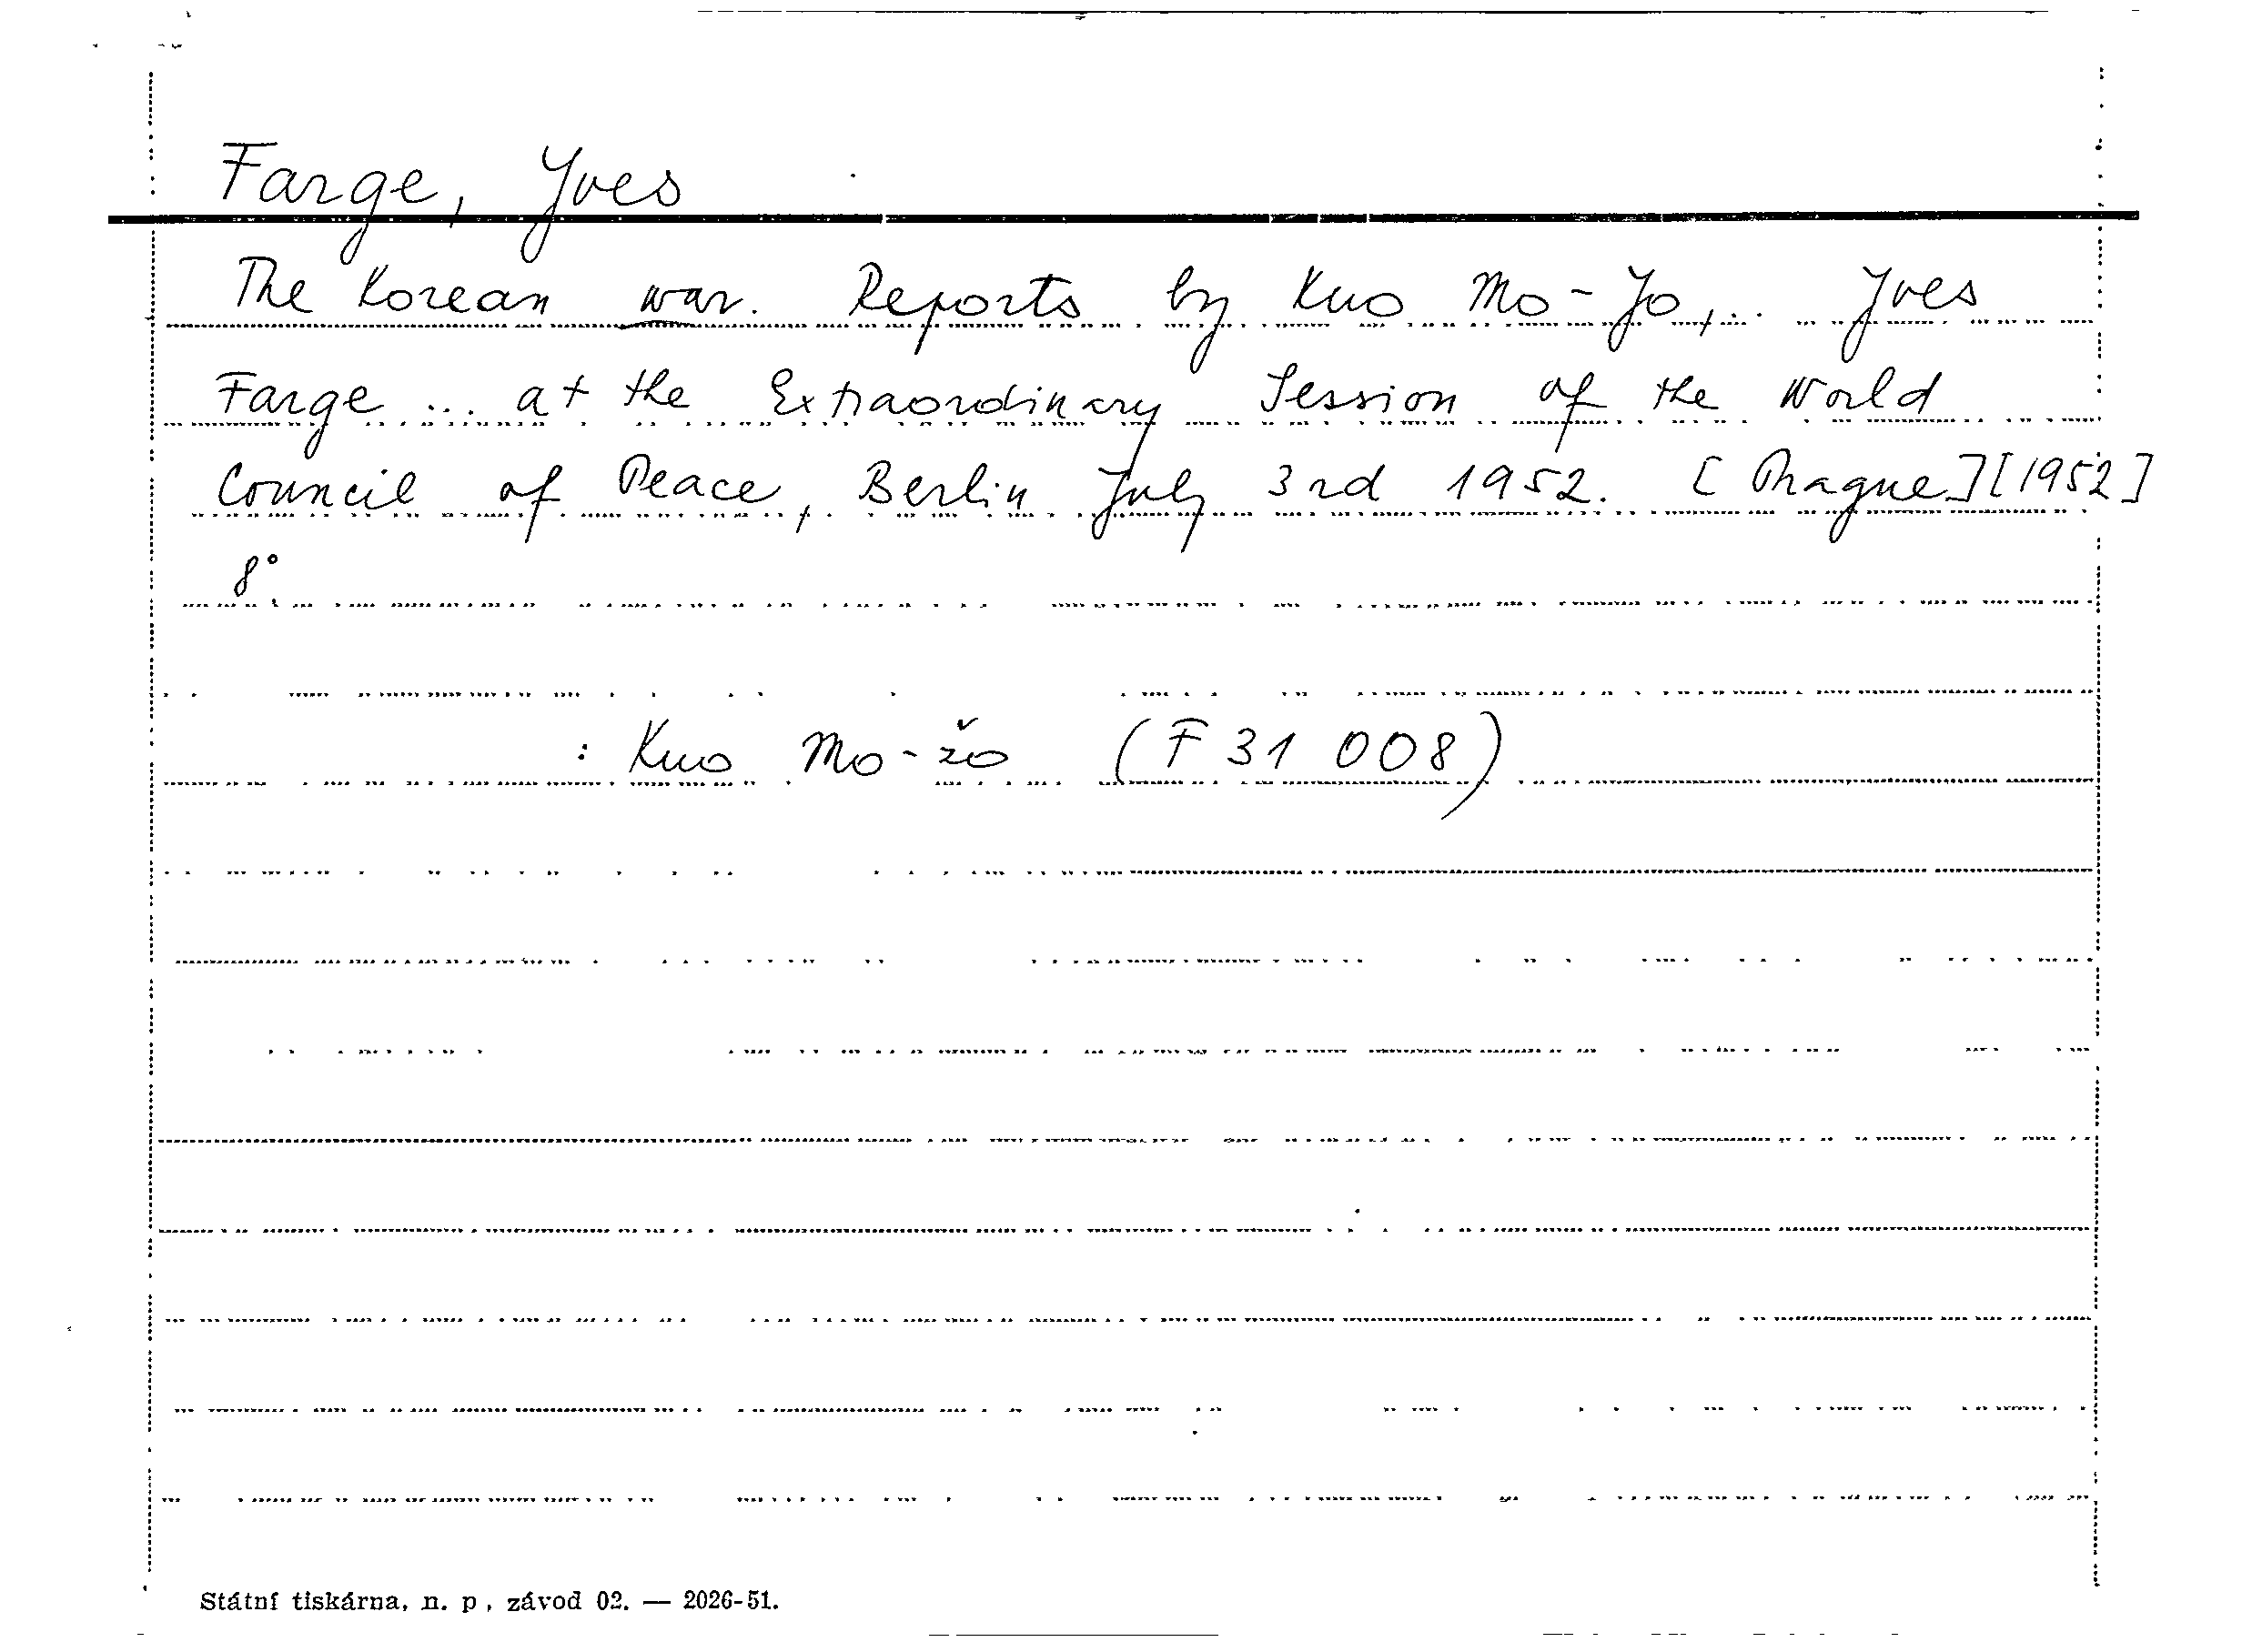 Farge, Yves
The Korean war. Reports by Kuo Mo-Jo,... Yves
Farge ... at the Extraordinary Session of the World
Council of Peace, Berlin July 3rd 1952. [Prague][1952]
8°.
: Kuo Mo-žo (F 31 008)
Státní tiskárna, n. p., závod 02. — 2026-51.